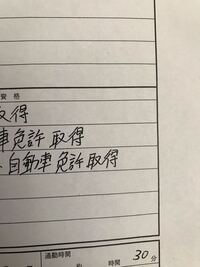 資格
取得
車免許取得
自動車免許取得
通勤時間
30分
約 時間